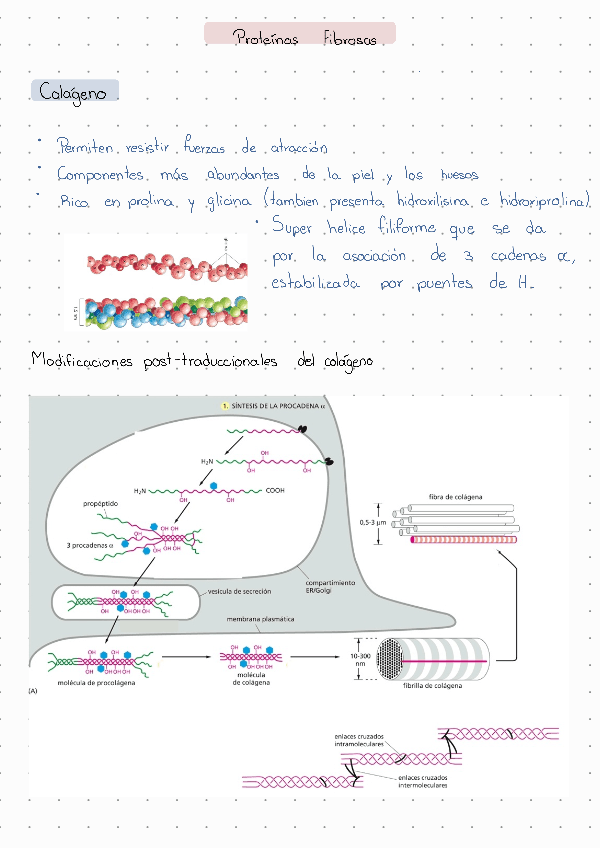 Proteínas Fibrosas
Colágeno
· Permiten resistir fuerzas de atracción
· Componentes más abundantes de la piel y los huesos
· Rico en prolina y glicina (tambien presenta hidroxilisina e hidroxiprolina)
· Super helice filiforme que se da
por la asociación de 3 cadenas α,
estabilizada por puentes de H.
Modificaciones post-traduccionales del colágeno
1. SÍNTESIS DE LA PROCADENA α
H₂N
OH
OH OH
H₂N COOH
OH OH
propéptido
OH OH
OH
3 procadenas α
OH OH
fibra de colágena
0,5-3 μm
compartimiento
ER/Golgi
vesícula de secreción
OH OH
OH OH OH
membrana plasmática
OH OH
OH OH OH OH
molécula de procolágena
OH OH
OH OH OH OH
molécula
de colágena
10-300
nm
fibrilla de colágena
(A)
enlaces cruzados
intramoleculares
enlaces cruzados
intermoleculares